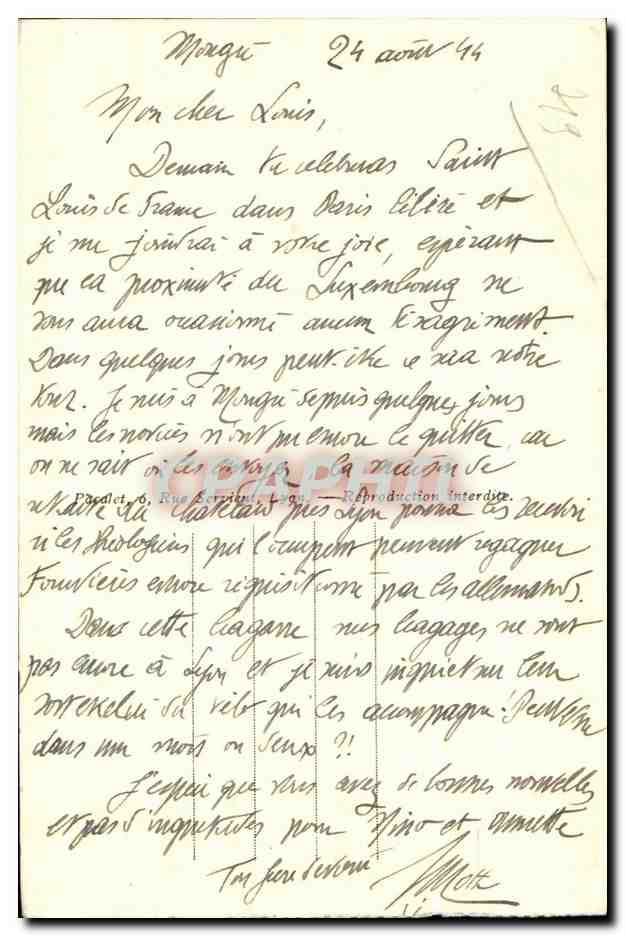 Mongré 24 août 44
Mon cher Louis,
Demain tu celebreras Saint
Louis de France dans Paris libéré et
je me joindrai à votre joie, espérant
que la proximité du Luxembourg ne
vous aura occasionné aucun désagrément.
Dans quelques jours peut-être ce sera notre
tour. Je suis à Mongré depuis quelques jours
mais les novices n'ont pu encore le quitter, car
on ne sait où les envoyer la maison de
Pacalet, 6, Rue Servient, Lyon. — Reproduction interdite.
retraite du Chatelard près Lyon pourra les recevoir
si les théologiens qui l'occupent peuvent regagner
Fourvières encore réquisitionné par les allemands.
Dans cette bagarre mes bagages ne sont
pas encore à Lyon et je suis inquiet sur leur
sort et celui du vélo qui les accompagne! Peut être
dans un mois ou deux ?!!
J'espère que vous avez de bonnes nouvelles
et pas d'inquiétudes pour Nino et Annette
Ton frère dévoué